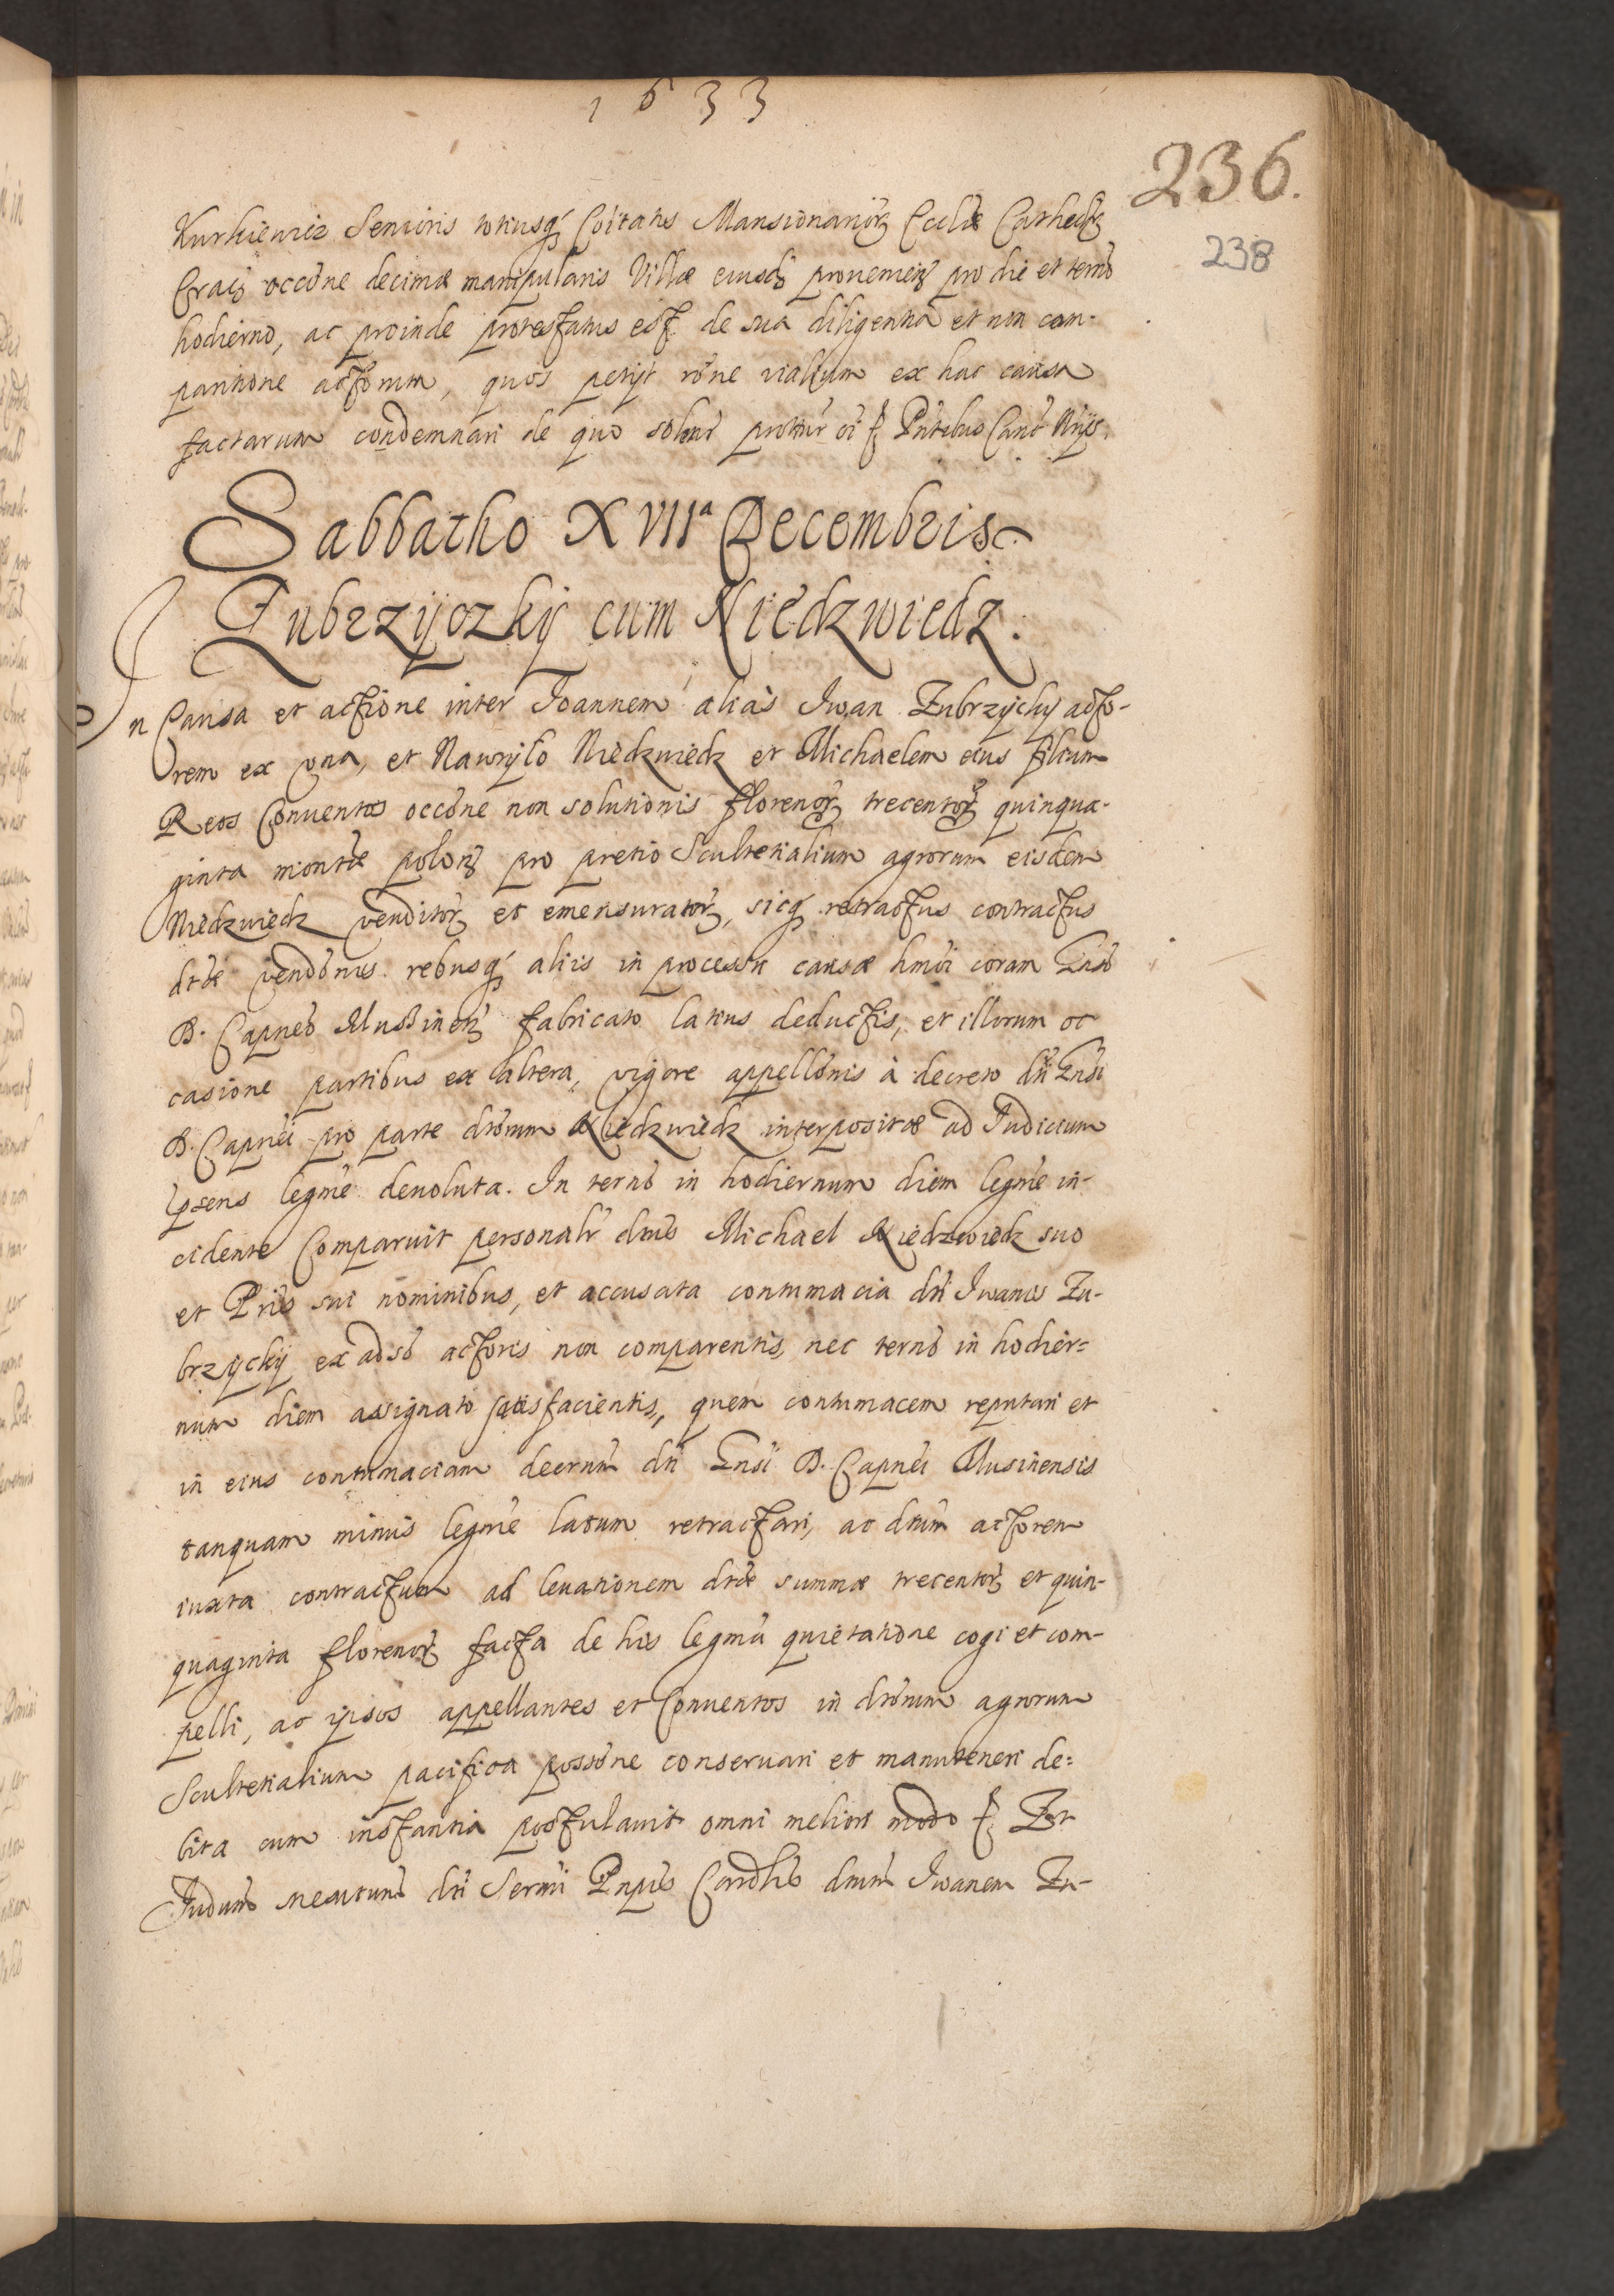 1633
236.
238
Kurkiewicz Senioris totiusq́ Cōītatis Mansionariorꝝ Eccliæ Cathedrꝝ
Cracꝝ occōne decimæ manipularis Villæ eiusdꝫ provenienꝝ pro die et termō
hodierno, ac proinde protestatus est de sua diligentia et non com-
paritione actorum, quos petijt rōne vialium ex hac causa
factarum condemnari de quo solnr̄ Pñtibus Canc̄ Nrijs.
Sabbatho XVIIᵃ Decembris
Zubrzyczky cum Niedzwiedz.
In Causa et actione inter Joannem alias Iwan Zubrzycky acto-
rem ex vna, et Nawryło Niedzwiedz et Michaelem eius filium
Reos Conventos occōne non solutionis florenorꝝ trecentorꝝ quinqua-
ginta montæ polonꝝ pro pretio Scultetialium agrorum eisdem
Niedzwiedz venditorꝝ et emensuratorꝝ, sicq́ retractus contractus
dt̄æ vendōnis rebusq́ aliis in processu causæ hmōi coram Gnso
D. Capneo Mussinenꝝ fabricato latius deductis, et illorum oc
casione partibus ex altera, vigore appellōnis à decreto dti Gnsi
D. Capnei pro parte dtorum Niedzwiedz interpositæ ad Judicium
psens legmē devoluta. In termō in hodiernum diem legmē in-
cidente Comparuit personalr̄ dtus Michael Niedzwiedz suo
et Pris sui nominibus, et accusata contumacia dti Iwanis Zu-
brzycky ex adso actoris non comparentis, nec termō in hodier=
num diem assignato satisfacientis, quem contumacem reputari et
in eius contumaciam decrtum dti Gnsi D. Capnei Musinensis
tanquam minus legmē latum retractari, ac dtum actorem
iuxta contractum ad levationem dtæ summæ trecentorꝝ et quin-
quaginta florenorꝝ facta de his legma quietatione cogi et com-
pelli, ac ipsos appellantes et Conventos in dtorum agrorum
Scultetialium pacifica possōne conservari et manuteneri de=
bita cum instantia postulavit omni meliori modo Et
Judum dti Sermi Pnpis Cardlis dtum Iwanem Zu-